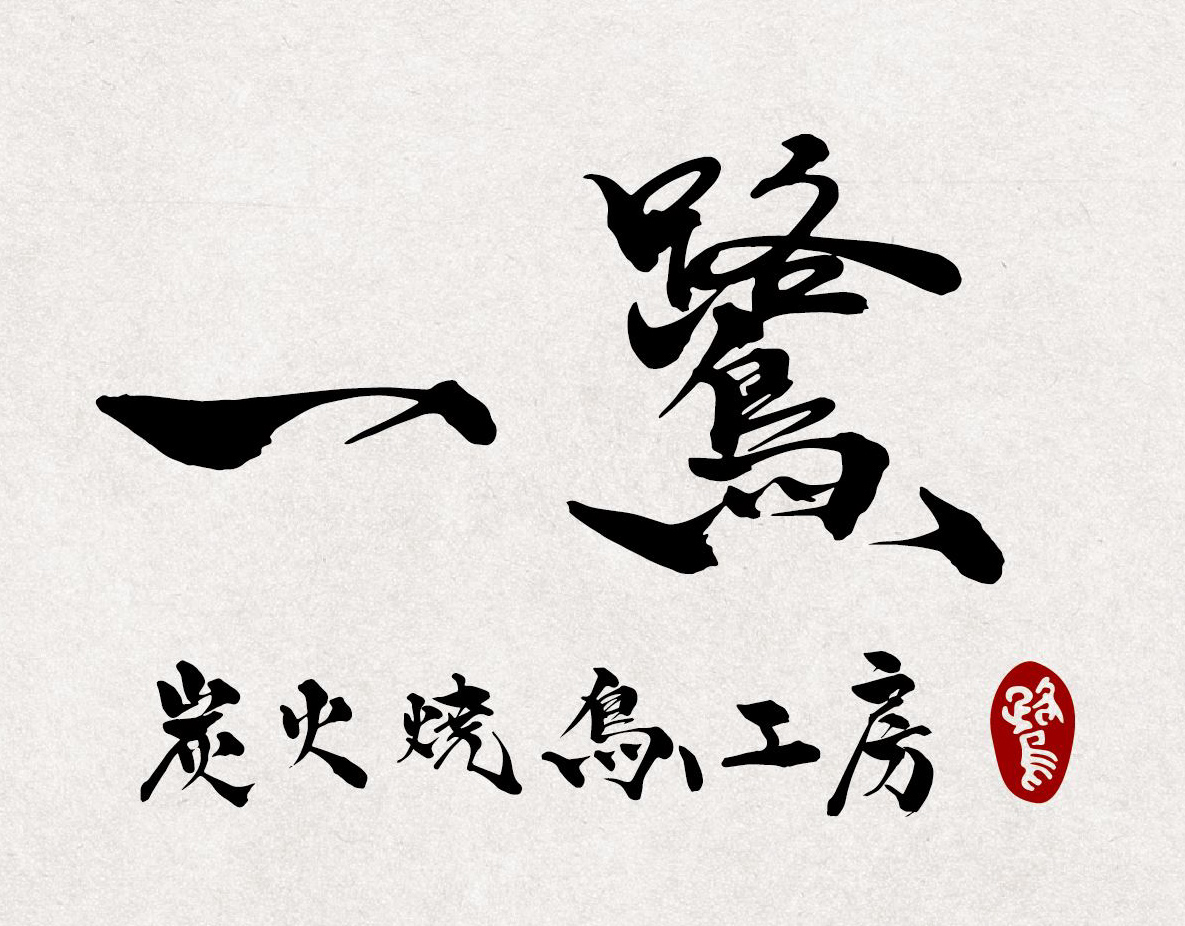 一鷺
炭火焼鳥工房
鷺